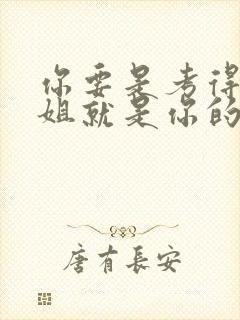 你要是考得
姐就是你的
唐有長安